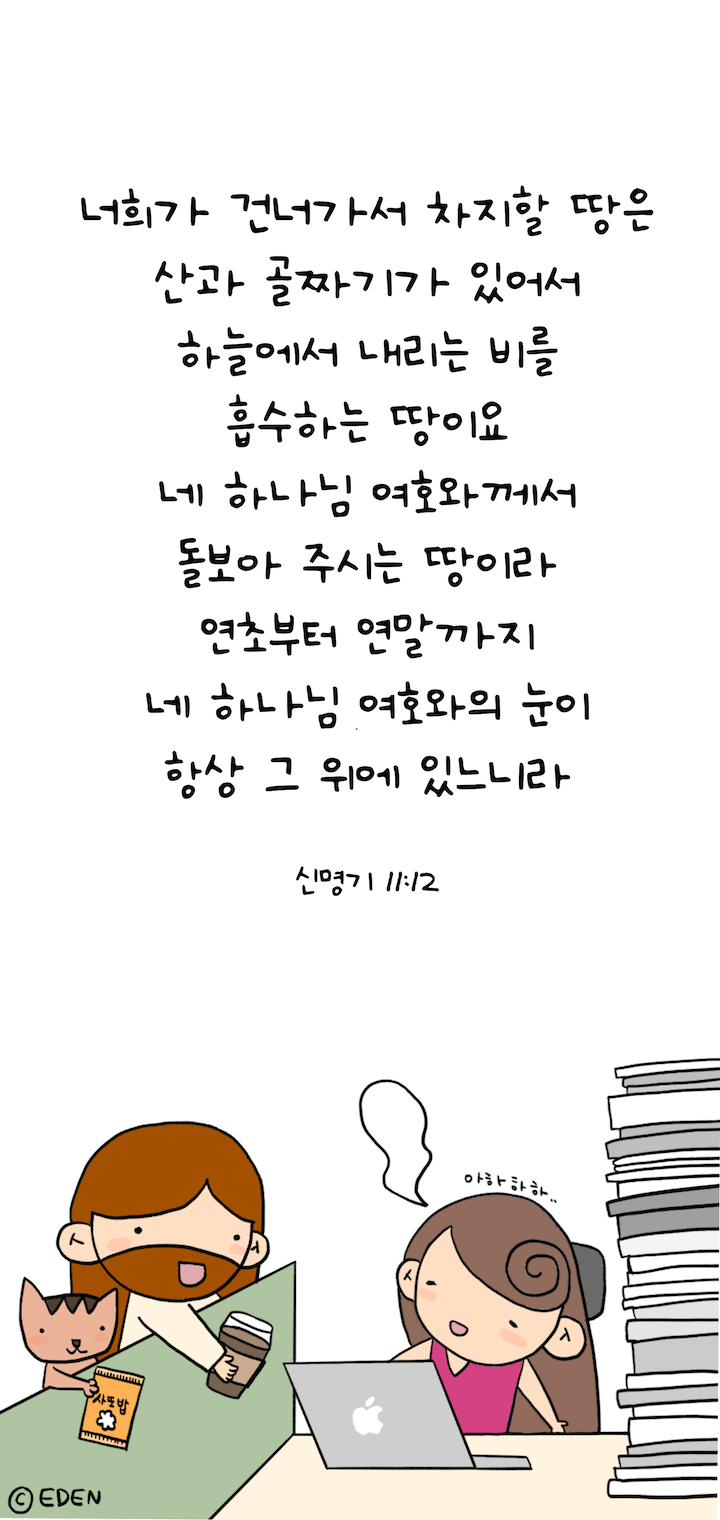 너희가 건너가서 차지할 땅은
산과 골짜기가 있어서
하늘에서 내리는 비를
흡수하는 땅이요
네 하나님 여호와께서
돌보아 주시는 땅이라
연초부터 연말까지
네 하나님 여호와의 눈이
항상 그 위에 있느니라
신명기 11:12
아하하하..
사또밥
© EDEN